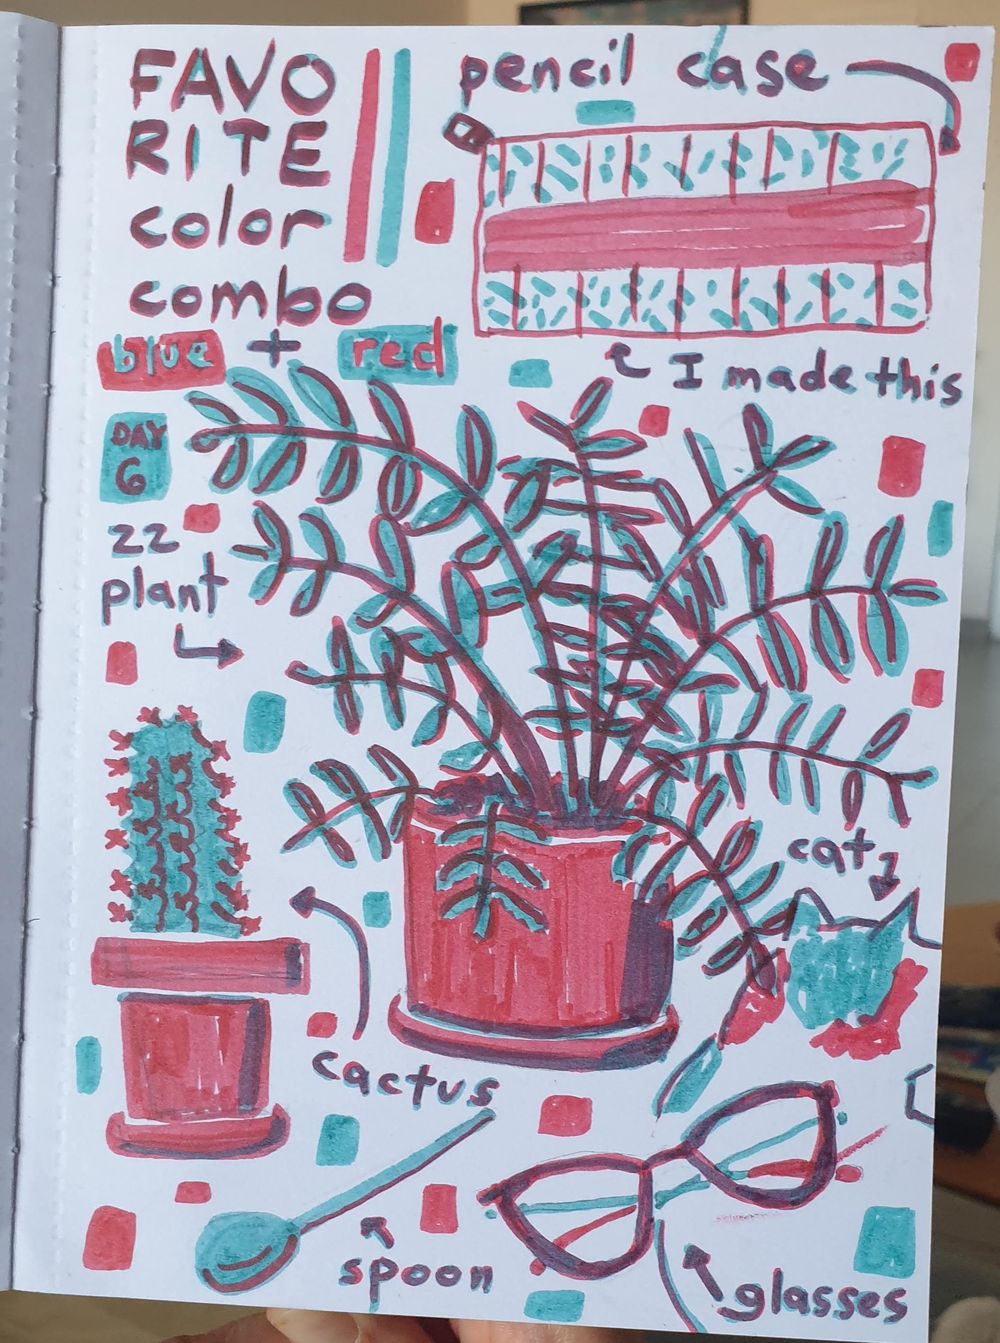 FAVO
RITE
color
combo
blue + red
pencil case
I made this
DAY
6
zz
plant
cat
cactus
spoon
glasses